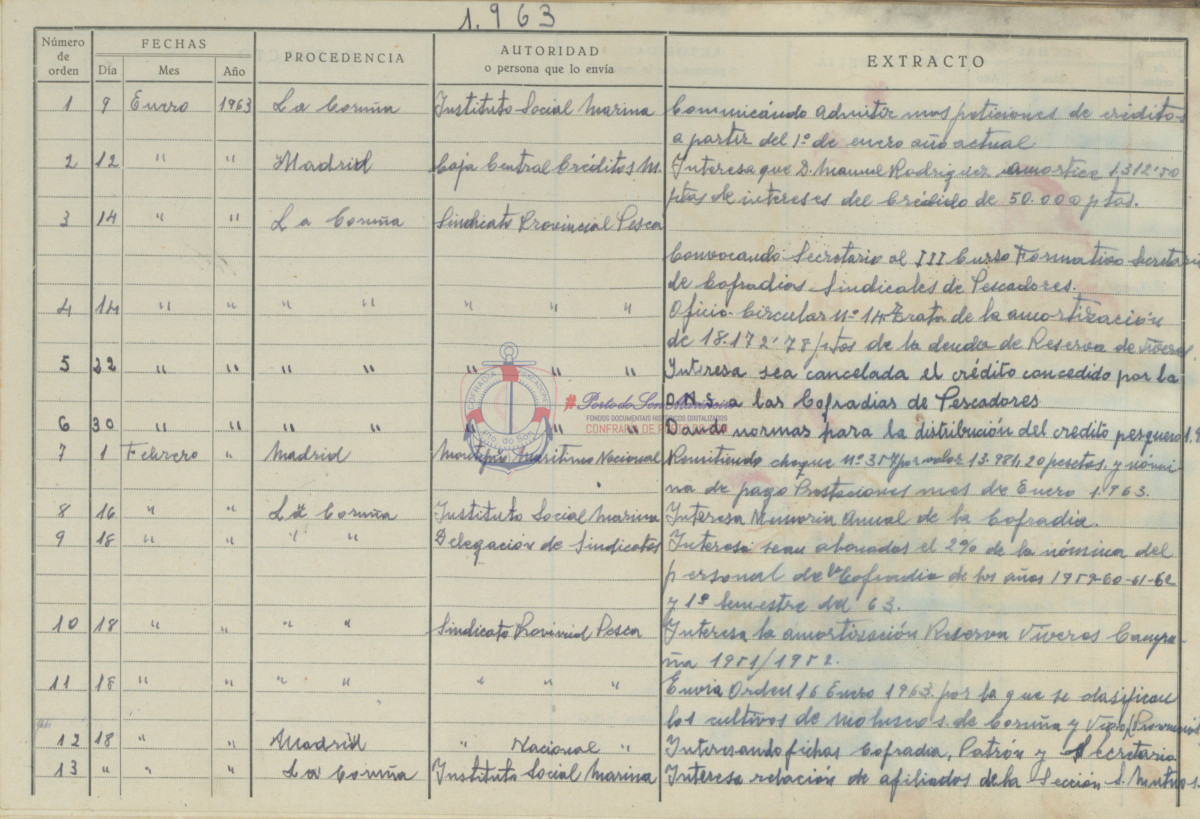 1.963
Número de orden FECHAS PROCEDENCIA AUTORIDAD o persona que lo envía EXTRACTO
Día Mes Año
1 9 Enero 1963 La Coruña Instituto Social Marina Comunicando admitir mas peticiones de créditos
a partir del 1º de enero año actual
2 12 " " Madrid Caja Central Créditos M. Interesa que D. Manuel Rodriguez amortice 1.312'50
ptas de intereses del Crédido de 50.000 ptas.
3 14 " " La Coruña Sindicato Provincial Pesca
Convocando Secretario al III Curso Formativo
de Cofradias Sindicales de Pescadores.
4 14 " " " " " " " Oficio-Circular nº 14 trata de la amortización
de 18.172'78 ptas de la deuda de Reserva de Viveros
5 22 " " " " " " " Interesa sea cancelada el crédito concedido por la
D.N.S. a las Cofradias de Pescadores
6 30 " " " " " " Dando normas para la distribución del credito pesquero
7 1 Febrero " Madrid Montepio Maritimo Nacional Remitiendo cheque nº 357 por valor 13.981,20 pesetas, y nómi-
na de pago Prestaciones mes de Enero 1.963.
8 16 " " La Coruña Instituto Social Marina Interesa Memoria Anual de la Cofradia.
9 18 " " " " Delegación de Sindicatos Interesa sean abonados el 2% de la nómina del
personal de la Cofradia de los años 1959-60-61-62
y 1º Semestre del 63.
10 18 " " " " Sindicato Provincial Pesca Interesa la amortización Reserva Viveros Campa-
ña 1951/1952.
11 18 " " " " " " " Envia Orden 16 Enero 1963 por la que se clasifican
los cultivos de moluscos de Coruña y Vigo
12 18 " " Madrid " Nacional " Interesando fichas Cofradia, Patrón y Secretario
13 " " " La Coruña Instituto Social Marina Interesa relación de afiliados de la Sección S. Mutuos.
COFRADIA PESCADORES
Pto. do Son
#PortodoSonMariñeiro
FONDOS DOCUMENTAIS HISTÓRICOS DIGITALIZADOS
CONFRARÍA DE PORTO DO SON